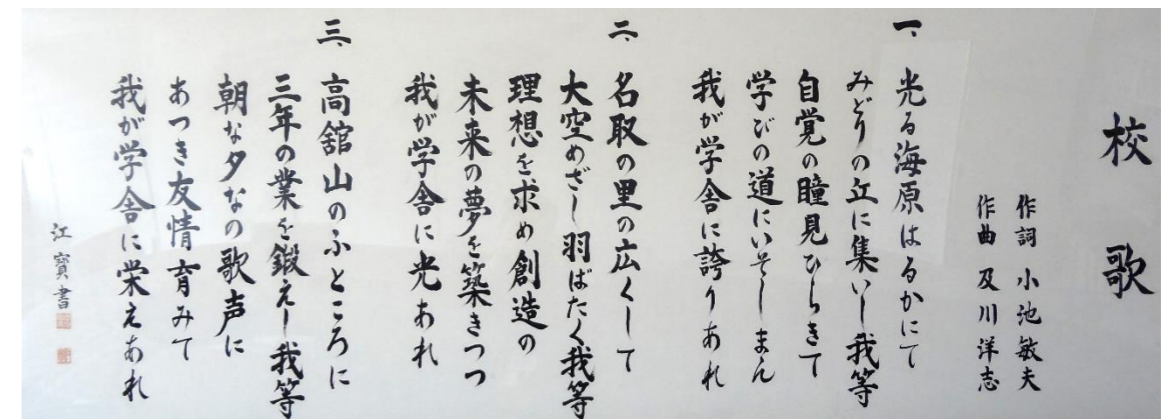 校歌
作詞 小池敏夫
作曲 及川洋志
一、光る海原はるかにて
みどりの丘に集いし我等
自覚の瞳見ひらきて
学びの道にいそしまん
我が学舎に誇りあれ
二、名取の里の広くして
大空めざし羽ばたく我等
理想を求め創造の
未来の夢を築きつつ
我が学舎に光あれ
三、高舘山のふところに
三年の業を鍛えし我等
朝な夕なの歌声に
あつき友情育みて
我が学舎に栄えあれ
江寶書